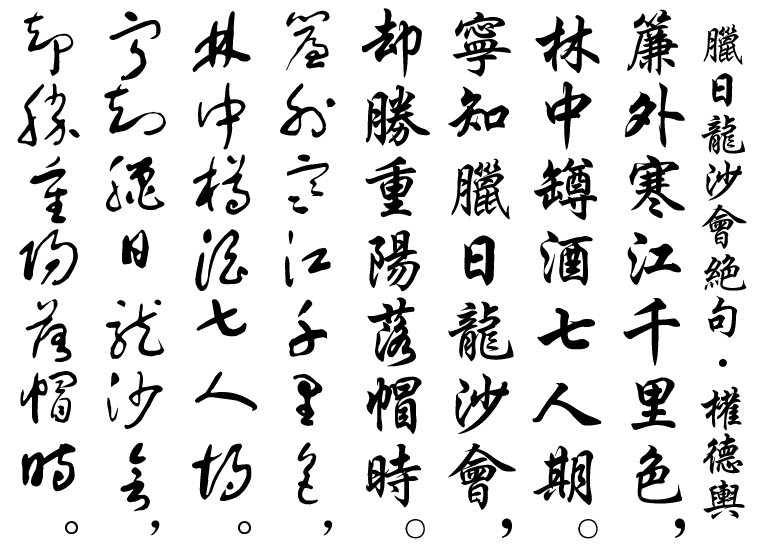 臘日龍沙會絶句・權德輿
簾外寒江千里色,
林中罇酒七人期。
寧知臘日龍沙會,
却勝重陽落帽時。
簾外寒江千里色,
林中樽酒七人期。
寧知臘日龍沙會,
却勝重陽落帽時。